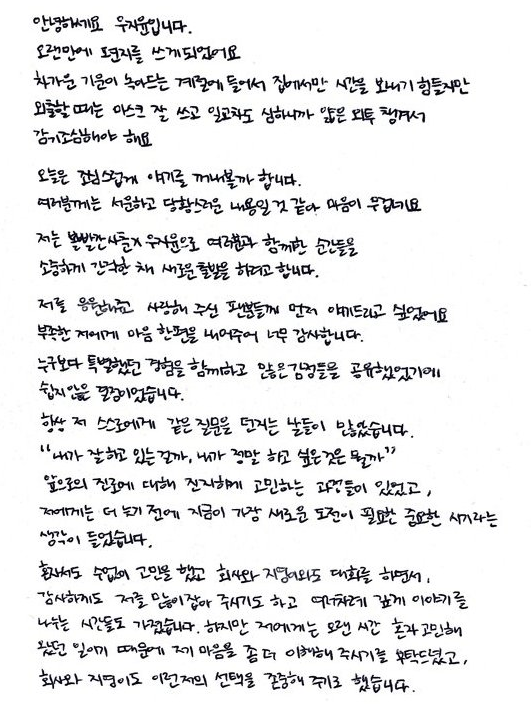 안녕하세요 우지윤입니다.
오랜만에 편지를 쓰게되었어요
차가운 기운이 녹아드는 계절에 들어서 집에서만 시간을 보내기 힘들지만
외출할 때는 마스크 잘 쓰고 일교차도 심하니까 얇은 외투 챙겨서
감기조심해야 해요
오늘은 조심스럽게 얘기를 꺼내볼까 합니다.
여러분께는 서운하고 당황스러운 내용일 것 같아 마음이 무겁네요
저는 볼빨간사춘기 우지윤으로 여러분과 함께한 순간들을
소중하게 간직한 채 새로운 출발을 하려고 합니다.
저를 응원해주고 사랑해 주신 팬분들께 먼저 얘기드리고 싶었어요
부족한 저에게 마음 한편을 내어주어 너무 감사합니다.
누구보다 특별했던 경험을 함께하고 많은 감정들을 공유했었기에
쉽지않은 결정이었습니다.
항상 저 스스로에게 같은 질문을 던지는 날들이 많았습니다.
"내가 잘 하고 있는걸까, 내가 정말 하고 싶은것은 뭘까"
앞으로의 진로에 대해 진지하게 고민하는 과정들이 있었고,
저에게는 더 늦기 전에 지금이 가장 새로운 도전이 필요한 중요한 시기라는
생각이 들었습니다.
혼자서도 수없이 고민을 했고 회사와 지영이와도 대화를 하면서,
감사하게도 저를 많이 잡아 주시기도 하고 여러차례 깊게 이야기를
나누는 시간들도 가졌습니다. 하지만 저에게는 오랜 시간 혼자 고민해
왔던 일이기 때문에 제 마음을 좀 더 이해해 주시기를 부탁드렸고,
회사와 지영이도 이런저의 선택을 존중해 주기로 했습니다.